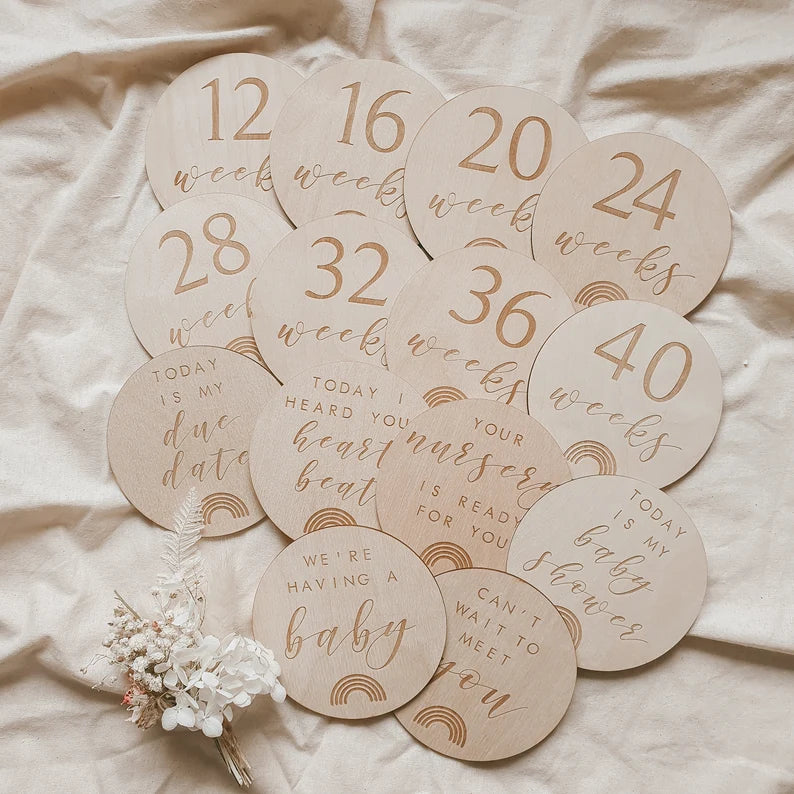 12
weeks
16
weeks
20
weeks
24
weeks
28
weeks
32
weeks
36
weeks
40
weeks
TODAY
IS MY
due
date
TODAY I
HEARD YOUR
heart
beat
YOUR
nursery
IS READY
FOR YOU
TODAY
IS MY
baby
shower
WE'RE
HAVING A
baby
CAN'T
WAIT TO
MEET
you